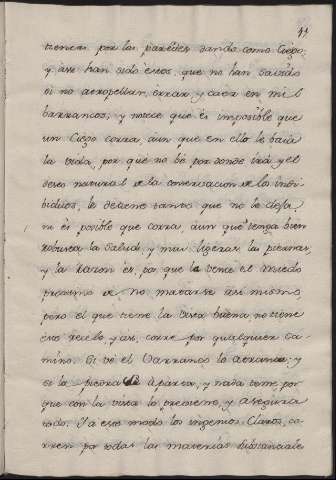 tienen por las paredes dando como Ciego
y asi han sido estos, que no han savido
si no atropellar, errar y caer en mil
barrancos, y notece que es imposible que
un Ciego corra, aun que en ello le baia
la vida, por que no be por donde irá, y el
deseo natural de la conservacion de los indi-
biduos, le detiene tanto que no le dexa,
ni es posible que corra, aun que tenga bien
robusta la Salud, y mui ligeras las piernas,
y la razon es, por que le vence el miedo
proximo de no matarse asi mismo,
pero el que tiene la vista buena, no tiene
ese recelo, y asi, corre por qualquier ca-
mino. Si vé el Varranco lo
es la piedra aparta, y nada teme, por
que con la vista lo previene, y asegura
todo. Y a este modo los ingenios Claros, co-
rren por todas las materias substanciales